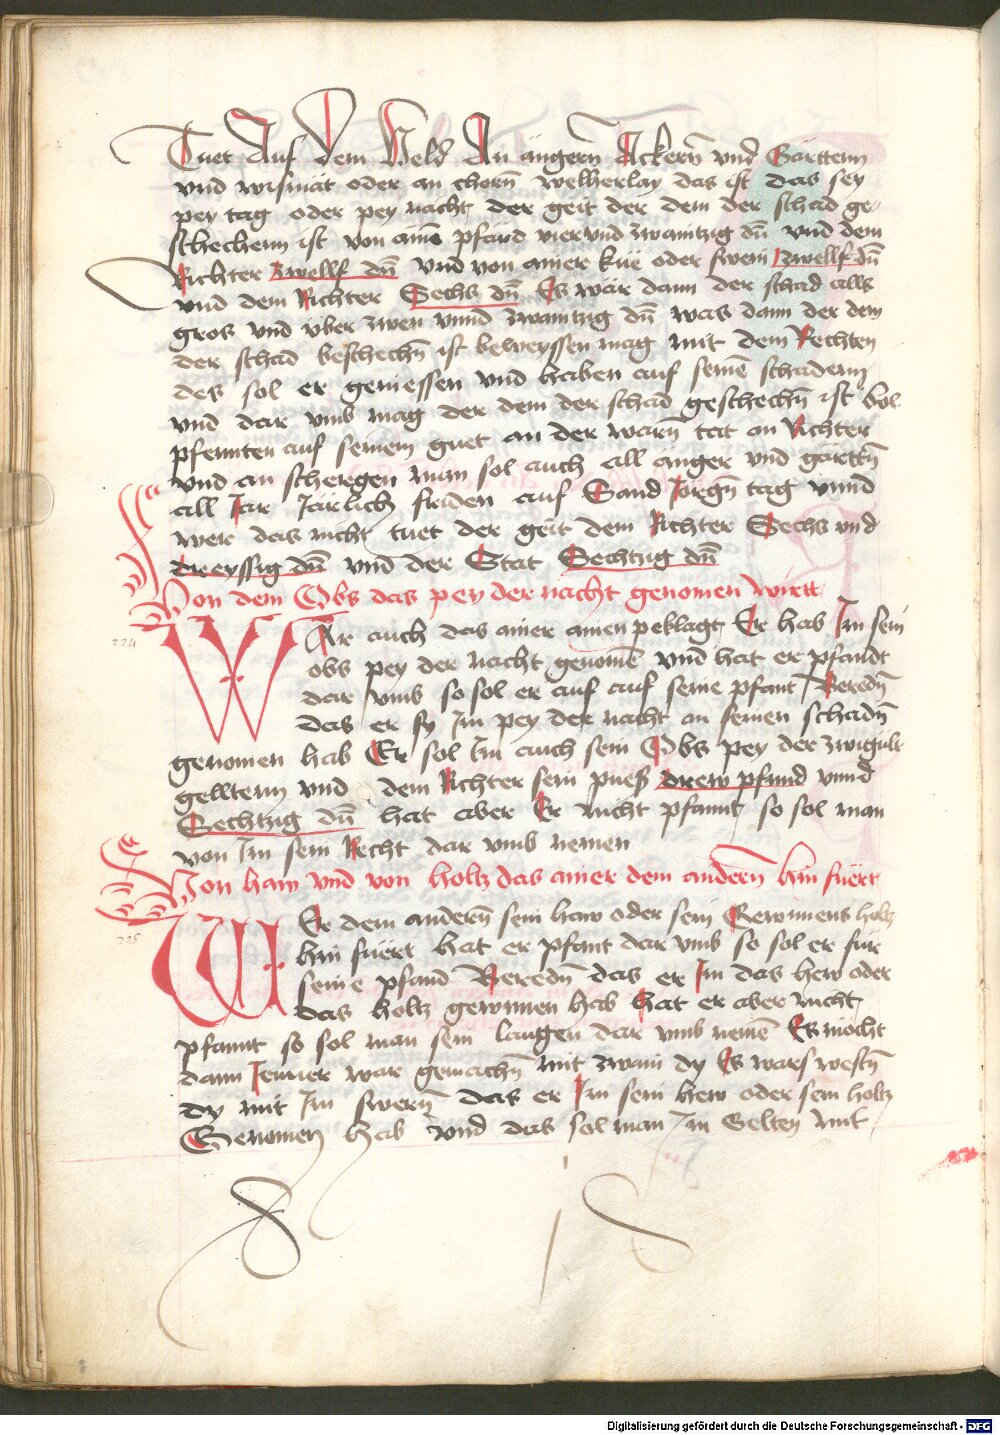 Tuet Auf dem Veld An ängern Ackern vnd Gärttenn
vnd wismät oder an chorn welherlay das ist das sey
pey tag oder pey nacht der geit der dem der schad ge
schechenn ist von aim pfard vier vnd zwaintzig dñ vnd dem
Richter zwellf dñ vnd von ainer küe oder swein zwellf dñ
vnd dem Richter Sechs dñ Es wär dann der schad alls
gros vnd über zwen vnnd zwaintzig dñ was dann der dem
der schad beschechñ ist beweyssen mag mit dem Rechten
des sol er geniessen vnd haben auf seinē schadenn
vnd dar vmb mag der dem der schad geschechñ ist vol
pfennten auf seinem guet an der warñ tat an Richter
vnd an schergen man sol auch all änger vnd gärttñ
all Jar Järlich friden auf Sand Jörgñ tag vnnd
wer das nicht tuet der geit dem Richter Sechs vnd
dreyssig dñ vnd der Stat Sechtzig dñ
Von dem Obs das pey der nacht genomen wirtt
224
WAr auch das ainer ainen peklagt Er hab Im sein
obs pey der nacht genomē vnd hat er pfandt
dar vmb so sol er auf auf seine pfant Beredñ
das er sy Im pey der nacht an seinen schadñ
genomen hab Er sol Im auch sein Obs pey der zwigült
gelltenn vnd dem Richter sein pueß drew pfund vnnd
Sechtzig dñ hat aber Er nicht pfannt so sol man
von Im sein Recht dar vmb nemen
Von haw vnd von holtz das ainer dem andern hin füert
225
WEr dem anderñ sein haw oder sein Gewunens holtz
hin füert hat er pfant dar vmb so sol er für
seine pfand Beredñ das er Im das hew oder
das holtz gewunnen hab hat er aber nicht
pfannt so sol man sein laugen dar vmb nemē Es möcht
dann Jenner war gemachñ mit zwain dy Es wars westñ
dy mit Im swerñ das er Im sein hew oder sein holtz
Genomen hab vnd das sol man Im Gelten mit
Digitalisierung gefördert durch die Deutsche Forschungsgemeinschaft - DFG